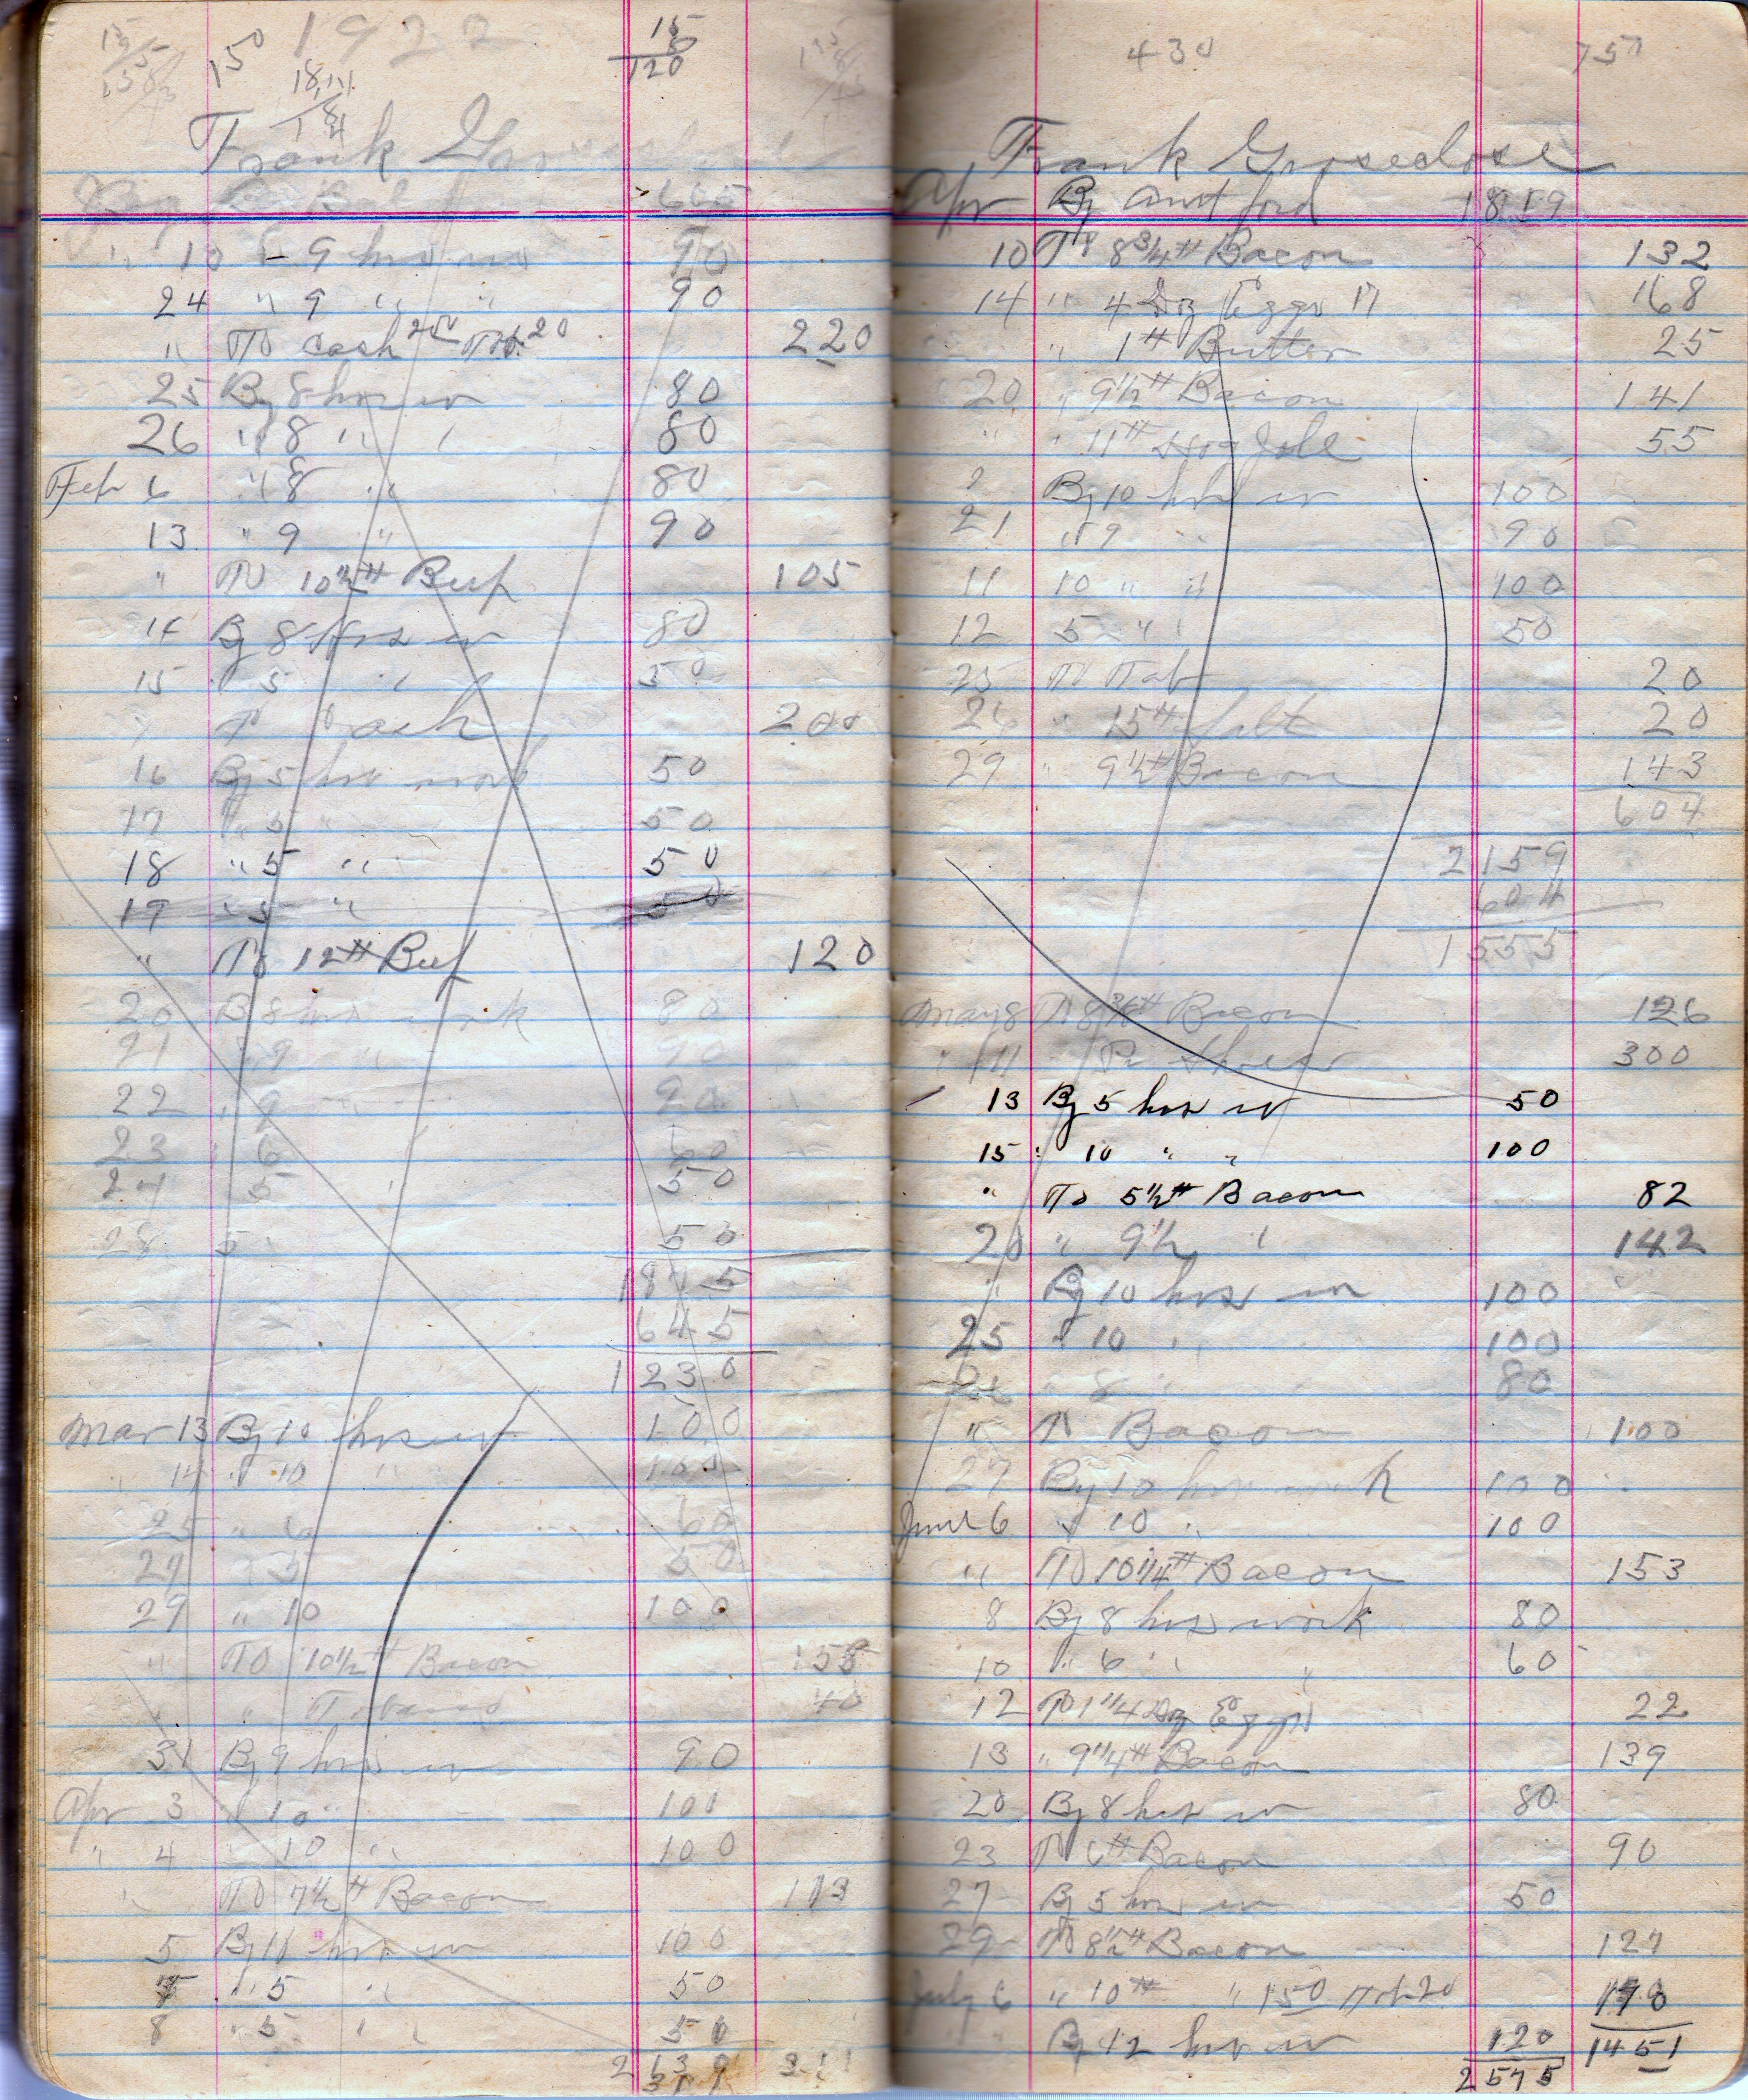 1922
15
120
Frank
605
10 - 9 hrs w 90
24 " 9 " " 90
" To cash 200 Tob. 20 220
25 By 8 hrs w 80
26 " 8 " 80
Feb 6 " 8 " 80
13 " 9 " 90
" To 10 1/2 # Beef 105
14 By 8 hrs w 80
15 " 5 " 50
To Cash 200
16 By 5 hrs work 50
17 " 5 " 50
18 " 5 " 50
19 " 5 " 50
" To 12 # Beef 120
20 B 8 hrs work 80
21 " 9 " 90
22 " 9 90
23 6 60
24 5 50
28 5 50
1875
645
1230
Mar 13 By 10 hrs w 100
" 14 " 10 " 100
25 " 6 60
27 " 5 50
29 " 10 100
" To 10 1/2 # Bacon 155
" " Tobacco 40
31 By 9 hrs w 90
Apr 3 " 10 " 100
" 4 " 10 " 100
" To 7 1/2 # Bacon 113
5 By 11 hrs w 100
7 " 5 " 50
8 " 5 " 50
430 750
Frank Groseclose
Apr By Amt ford 1819
10 To 8 3/4 # Bacon 132
14 " 4 Dz Eggs 17 168
" 1 # Butter 25
20 " 9 1/2 # Bacon 141
" " 11 # Hog Jole 55
By 10 hrs w 100
21 " 9 " 90
11 10 " " 100
12 5 " " 50
25 To Tob 20
26 " 15 # Salt 20
29 " 9 1/2 # Bacon 143
604
2159
604
1555
May 8 To 8 3/4 # Bacon 126
" 11 " 1 Pr Shoes 300
13 By 5 hrs w 50
15 " 10 " " 100
" To 5 1/2 # Bacon 82
20 " 9 1/2 " 142
" By 10 hrs w 100
25 " 10 " 100
26 " 8 " 80
" To Bacon 100
27 By 10 hrs work 100
June 6 " 10 " 100
" To 10 1/4 # Bacon 153
8 By 8 hrs work 80
10 " 6 " 60
12 To 1 1/4 Dz Eggs 22
13 " 9 1/4 # Bacon 139
20 By 8 hrs w 80
23 To 6 # Bacon 90
27 By 5 hrs w 50
29 To 8 1/2 # Bacon 127
July 6 " 10 # " 150 Tob 20 170
By 12 hrs w 120 1451
2575